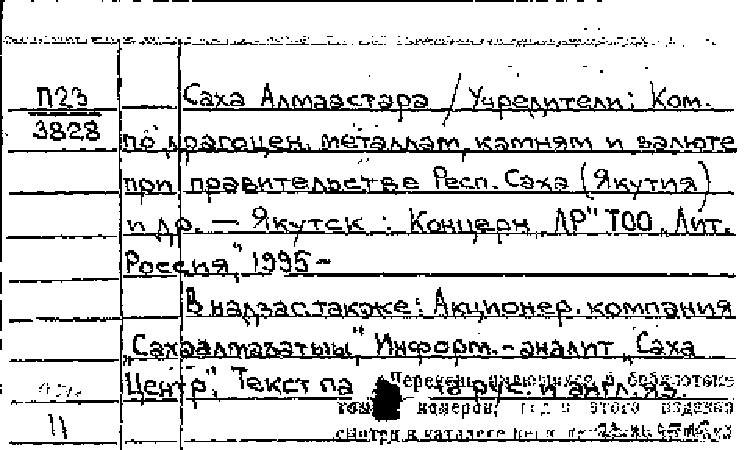 П23
3828
Саха Алмаастара / Учредители: Ком.
по драгоцен. металлам, камням и валюте
при правительстве Респ. Саха (Якутия)
и др. — Якутск : Концерн „ЛР" ТОО „Лит.
Россия", 1995 –
В надзаг. также: Акционер. компания
Информ.-аналит. „Саха
Центр". Текст па рус. и англ. яз.
Перечень имеющихся в библиотеке
номеров, год и этого издания
смотри в каталоге
11